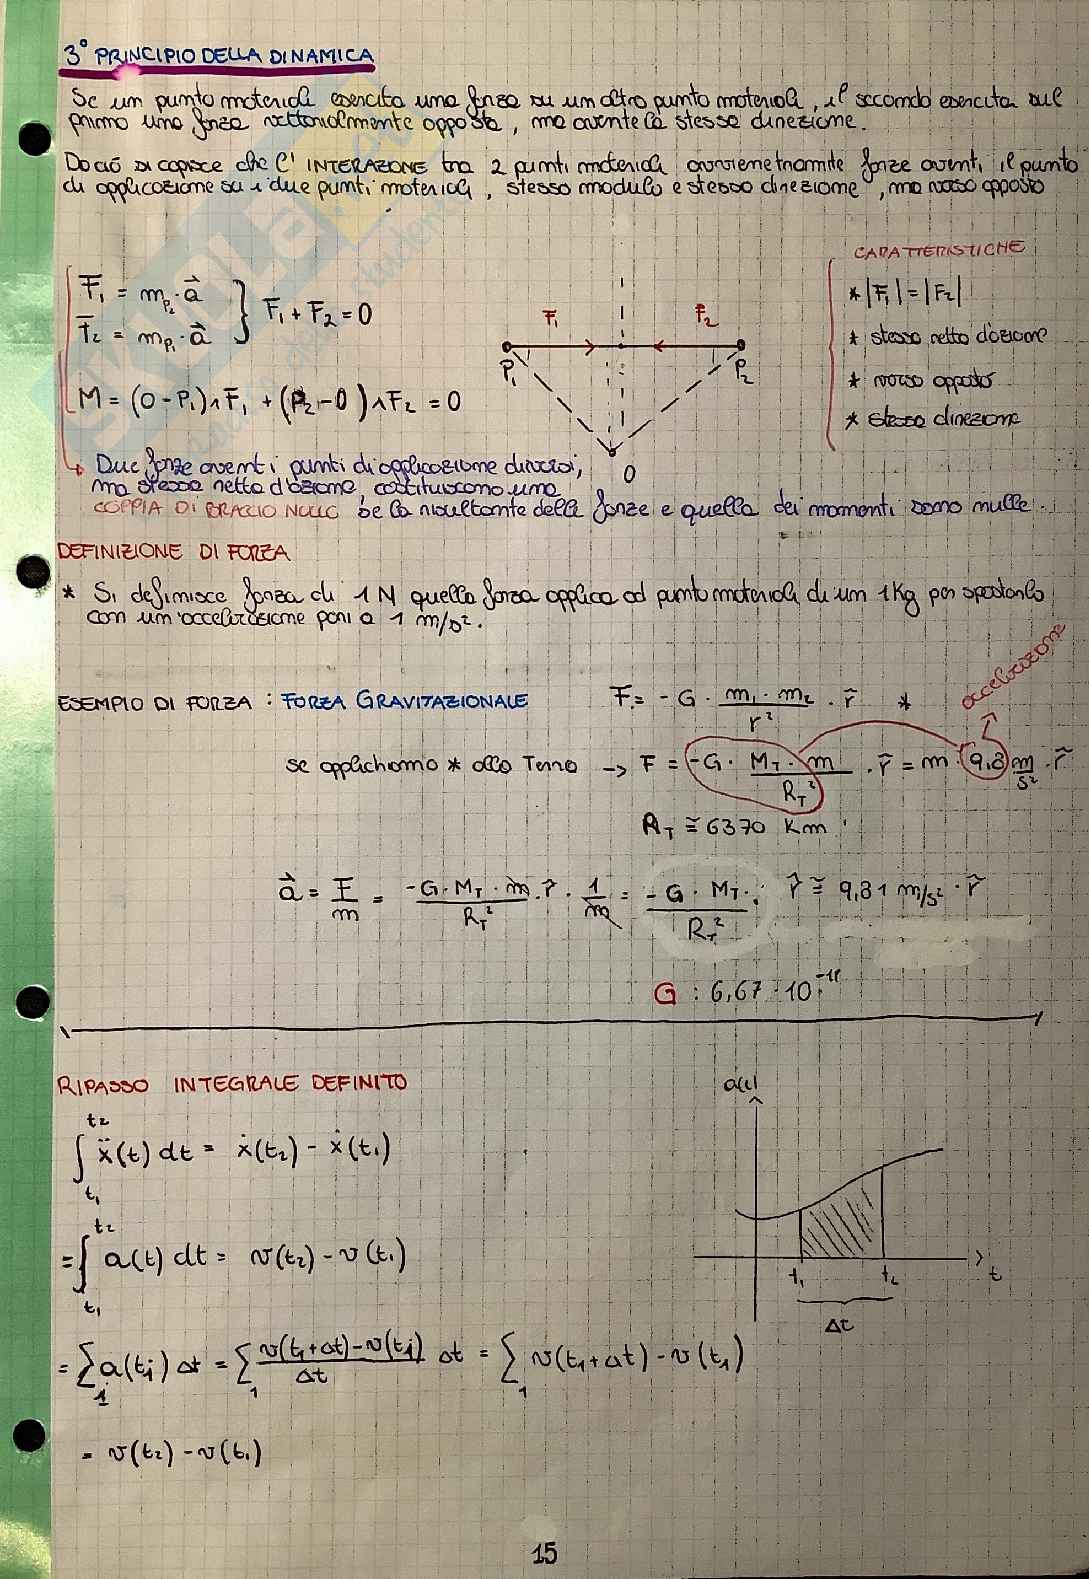 3° PRINCIPIO DELLA DINAMICA
Se un punto materiale esercita una forza su un altro punto materiale, il secondo esercita sul
primo una forza vettorialmente opposta, ma avente la stessa direzione.
Da ciò si capisce che l' INTERAZIONE tra 2 punti materiali avviene tramite forze aventi il punto
di applicazione su i due punti materiali, stesso modulo e stesso direzione, ma verso opposto
CARATTERISTICHE
F₁ = m_P₂ · a⃗
F₂ = m_P₁ · a⃗
F₁ + F₂ = 0
M = (O - P₁) ∧ F₁ + (P₂ - O) ∧ F₂ = 0
F₁
F₂
P₁
P₂
O
* |F₁| = |F₂|
* stessa retta d'azione
* verso opposto
* stessa direzione
↳ Due forze aventi punti di applicazione diversi,
ma stessa retta d'azione, costituiscono una
COPPIA DI BRACCIO NULLO se la risultante delle forze e quella dei momenti sono nulle.
DEFINIZIONE DI FORZA
* Si definisce forza di 1 N quella forza applica ad punto materiale di un 1Kg per spostarlo
con un'accelerazione pari a 1 m/s².
accelerazione
ESEMPIO DI FORZA : FORZA GRAVITAZIONALE F = - G · m₁ · m₂ / r² · r̂ *
se applichiamo * alla Terra -> F = -G · M_T · m / R_T² · r̂ = m · 9,8 m/s² · r̂
R_T ≅ 6370 Km
a⃗ = F/m = -G · M_T · m / R_T² · r̂ · 1/m = -G · M_T / R_T² · r̂ ≅ 9,81 m/s² · r̂
G : 6,67 · 10⁻¹¹
RIPASSO INTEGRALE DEFINITO
∫_t₁^t₂ ẍ(t) dt = ẋ(t₂) - ẋ(t₁)
= ∫_t₁^t₂ a(t) dt = v(t₂) - v(t₁)
= Σ₁ a(t_i) Δt = Σ₁ v(t₁+Δt) - v(t_i) / Δt Δt = Σ₁ v(t₁+Δt) - v(t₁)
= v(t₂) - v(t₁)
a(t)
t₁
t₂
t
Δt
15